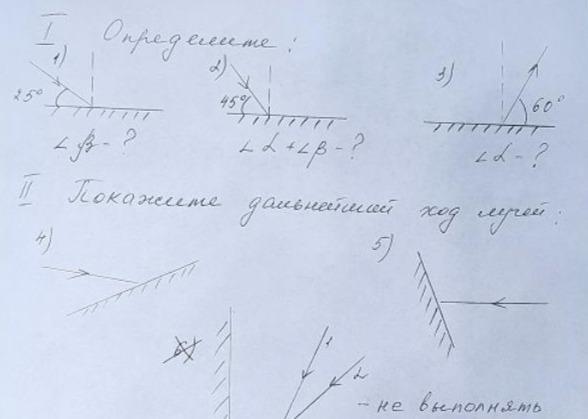 I Определите:
1) 2) 3)
25° 45° 60°
∠β - ? ∠α + ∠β - ? ∠α - ?
II Покажите дальнейший ход лучей:
4) 5)
6) 1 2
- не выполнять